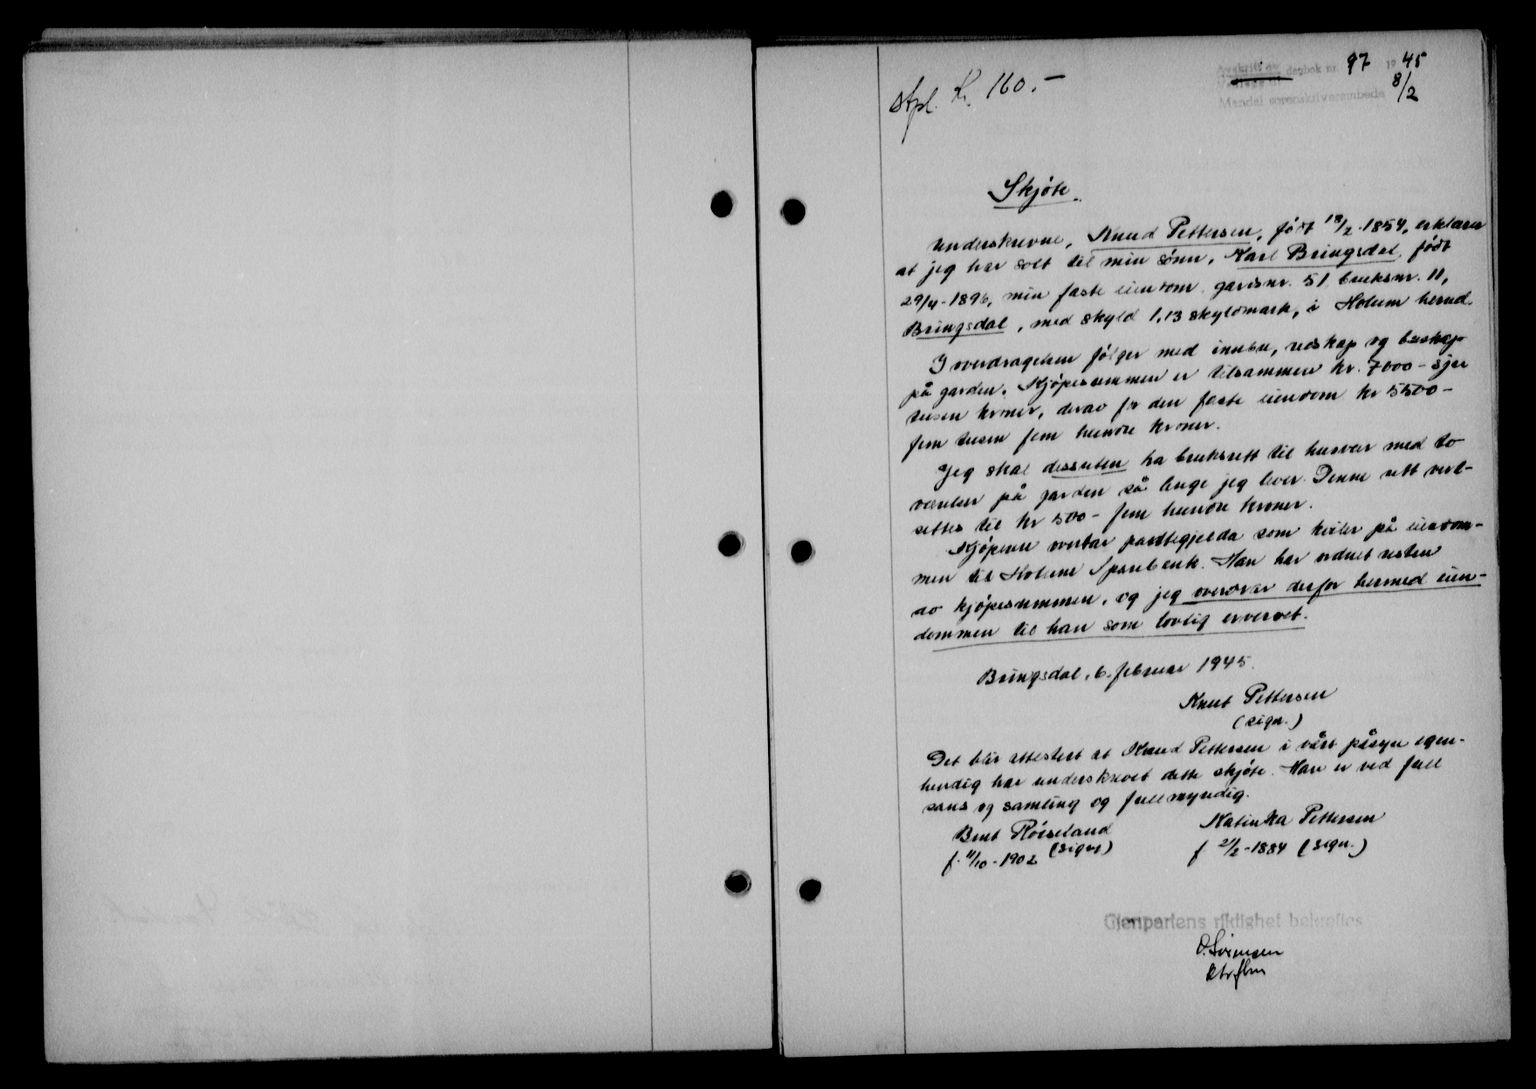 Avskrift av dagbok nr. 97 1945
8/2
Mandal sorenskriverembede
Stpl. Kr. 160.-
Skjøte.
Underskrevne, Knud Pettersen, født 18/2-1854, erklærer
at jeg har solt til min sønn, Karl Bringsdal, født
29/4-1896, min faste eiendom gardsnr. 51 bruksnr. 11,
Bringsdal, med skyld 1,13 skyldmark, i Holum herad.
I overdragelsen følger med innbu, redskap og buskap
på garden. Kjøpesummen er tilsammen kr. 7000- sju
tusen kroner, derav for den faste eiendom kr 5500-
fem tusen fem hundre kroner.
Jeg skal dessuten ha bruksrett til husvær med to
værelser på garden så lenge jeg lever. Denne rett verd-
settes til kr 500- fem hundre kroner.
Kjøperen overtar pantegjelda som kviler på eiendom-
men til Holum Sparebank. Han har ordnet resten
av kjøpesummen, og jeg overdrar derfor hermed eien-
dommen til han som lovlig ervervet.
Bringsdal, 6. februar 1945.
Knut Pettersen
(sign.)
Det blir attestert at Knud Pettersen i vårt påsyn egen-
hendig har underskrevet dette skjøte. Han er ved full
sans og samling og fullmyndig.
Bent Røiseland Katinka Pettersen
f. 11/10-1902 (sign) f 21/2-1884 (sign.)
Gjenpartens riktighet bekreftes
O. Sørensen